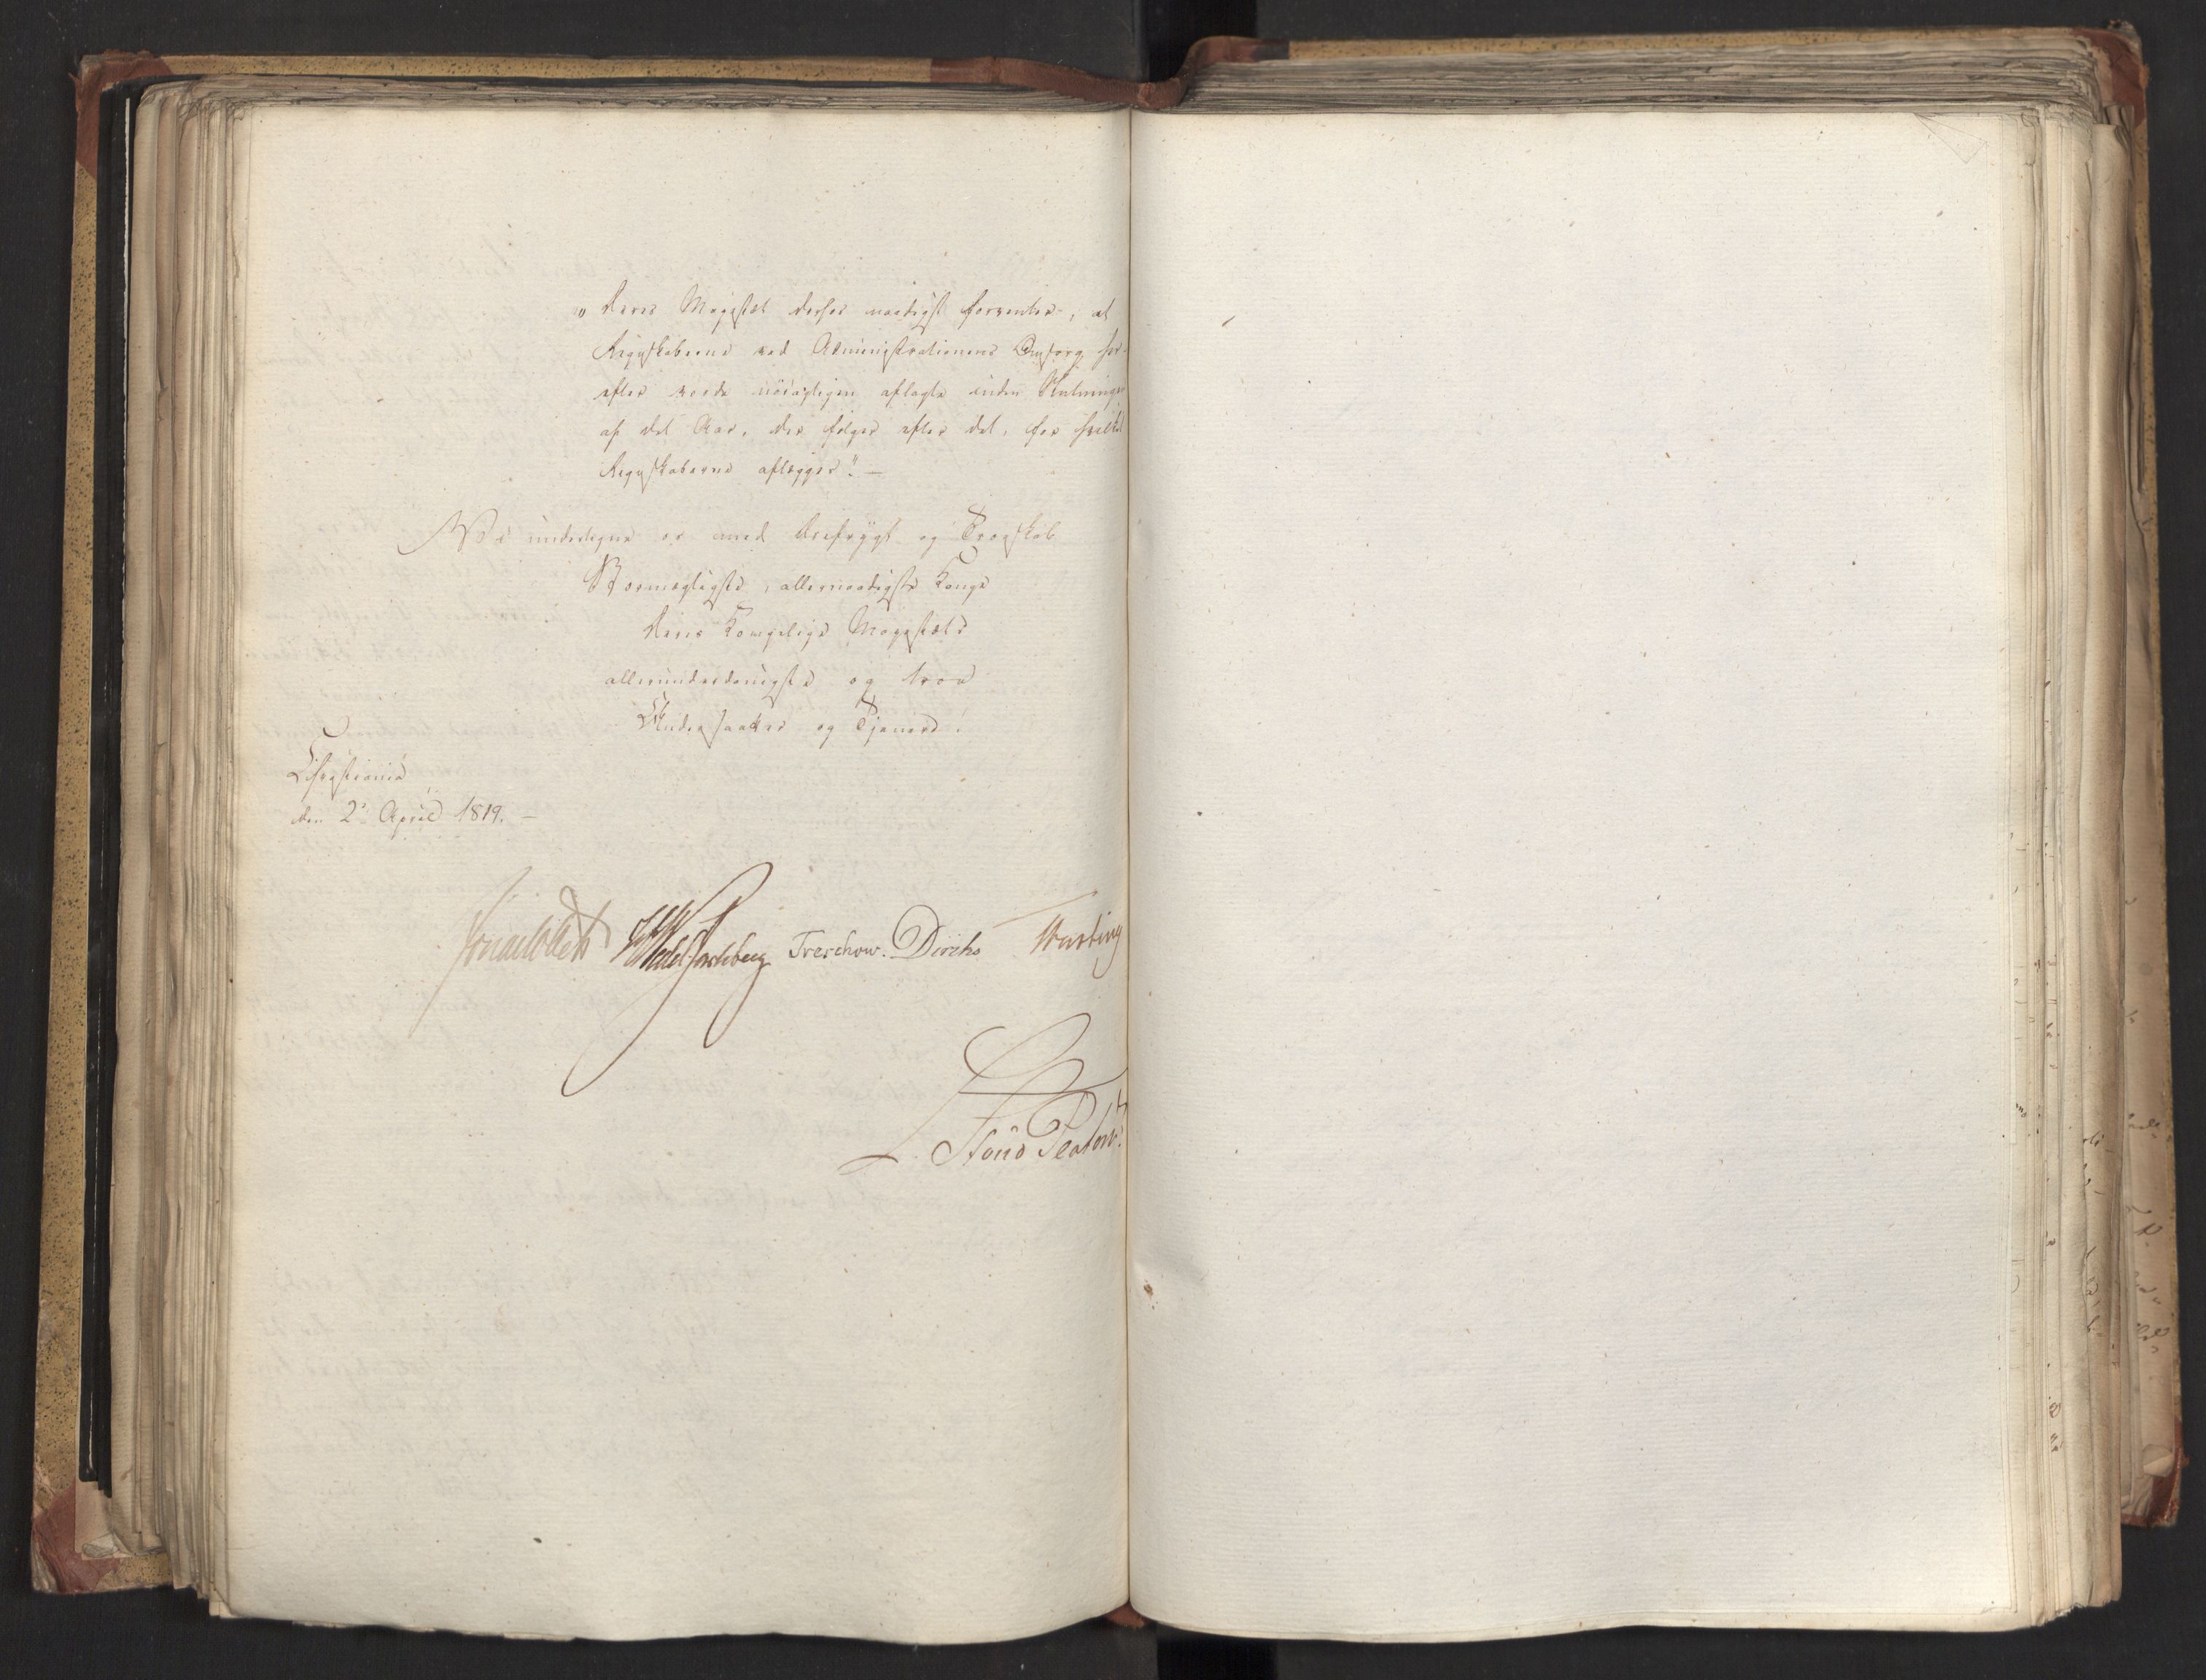 "Deres Majestæt derfor naadigst forventer, at
Regnskaberne ved Administrationens Omsorg her-
efter vorde nöiagtigen aflagte inden Slutningen
af det Aar, der følger efter det, for hvilket
Regnskaberne aflægges". —
Vi undertegne os med Ærefrygt og Troeskab
Stormægtigste, allernaadigste Konge
Deres Kongelige Majestæts
allerunderdanigste og troe
Undersaatter og Tjenere.
Christiania
den 2. April 1819. —
Wedel Jarlsberg Treschow. Diriks Motzfeldt